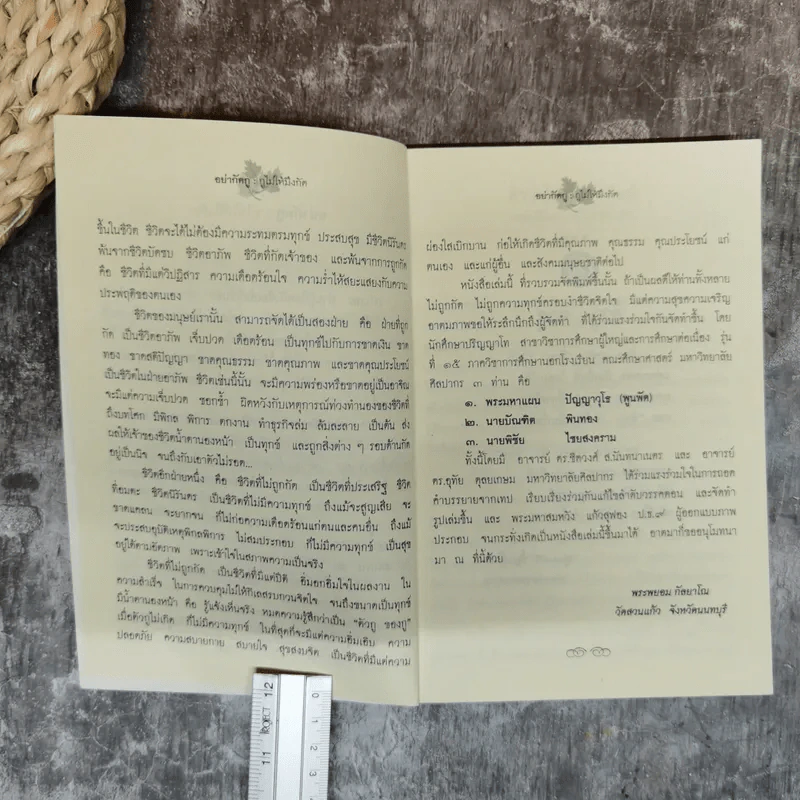 อย่ากัดกู : กูไม่ให้มึงกัด
ขึ้นในชีวิต ชีวิตจะได้ไม่ต้องมีความระทมตรมทุกข์ ประสบสุข มีชีวิตนิรันดร
พ้นจากชีวิตบัดซบ ชีวิตอาภัพ ชีวิตที่กัดเจ้าของ และพ้นจากการถูกกัด
คือ ชีวิตที่มีแต่วิปฏิสาร ความเดือดร้อนใจ ความร่ำให้สยะแสยงกับความ
ประพฤติของตนเอง
ชีวิตของมนุษย์เรานั้น สามารถจัดได้เป็นสองฝ่าย คือ ฝ่ายที่ถูก
กัด เป็นชีวิตอาภัพ เจ็บปวด เดือดร้อน เป็นทุกข์ไปกับการขาดเงิน ขาด
ทอง ขาดสติปัญญา ขาดคุณธรรม ขาดคุณภาพ และขาดคุณประโยชน์
เป็นชีวิตในฝ่ายอาภัพ ชีวิตเช่นนี้นั้น จะมีความพร่องหรือขาดอยู่เป็นอาจิณ
จะมีแต่ความเจ็บปวด ชอกช้ำ ผิดหวังกับเหตุการณ์ท่วงทำนองของชีวิตที่
ถึงบทโศก มีพิกล พิการ ตกงาน ทำธุรกิจล่ม ล้มละลาย เป็นต้น ส่ง
ผลให้เจ้าของชีวิตน้ำตานองหน้า เป็นทุกข์ และถูกสิ่งต่าง ๆ รอบด้านกัด
อยู่เป็นนิจ จนถึงกับเอาตัวไม่รอด...
ชีวิตอีกฝ่ายหนึ่ง คือ ชีวิตที่ไม่ถูกกัด เป็นชีวิตที่ประเสริฐ ชีวิต
ที่อมตะ ชีวิตนิรันดร เป็นชีวิตที่ไม่มีความทุกข์ ถึงแม้จะสูญเสีย จะ
ขาดแคลน จะยากจน ก็ไม่ก่อความเดือดร้อนแก่ตนและคนอื่น ถึงแม้
จะประสบอุบัติเหตุพิกลพิการ ไม่สมประกอบ ก็ไม่มีความทุกข์ เป็นสุข
อยู่ได้ตามอัตภาพ เพราะเข้าใจในสภาพความเป็นจริง
ชีวิตที่ไม่ถูกกัด เป็นชีวิตที่มีแต่ปีติ ยิ้มอกอิ่มใจในผลงาน ใน
ความสำเร็จ ในการควบคุมไม่ให้กิเลสรบกวนจิตใจ จนถึงขนาดเป็นทุกข์
มีน้ำตานองหน้า คือ รู้แจ้งเห็นจริง หมดความรู้สึกว่าเป็น "ตัวกู ของกู"
เมื่อตัวกูไม่เกิด ก็ไม่มีความทุกข์ ในที่สุดก็จะมีแต่ความยิ้มเยิบ ความ
ปลอดภัย ความสบายกาย สบายใจ สุขสงบจิต เป็นชีวิตที่มีแต่ความ
อย่ากัดกู : กูไม่ให้มึงกัด
ผ่องใสเบิกบาน ก่อให้เกิดชีวิตที่มีคุณภาพ คุณธรรม คุณประโยชน์ แก่
ตนเอง และแก่ผู้อื่น และสังคมมนุษยชาติต่อไป
หนังสือเล่มนี้ ที่รวบรวมจัดพิมพ์ขึ้นนั้น ถ้าเป็นผลดีให้ท่านทั้งหลาย
ไม่ถูกกัด ไม่ถูกความทุกข์ครอบงำชีวิตจิตใจ มีแต่ความสุขความเจริญ
อาตมภาพขอให้ระลึกนึกถึงผู้จัดทำ ที่ได้ร่วมแรงร่วมใจกันจัดทำขึ้น โดย
นักศึกษาปริญญาโท สาขาวิชาการศึกษาผู้ใหญ่และการศึกษาต่อเนื่อง รุ่น
ที่ ๑๕ ภาควิชาการศึกษานอกโรงเรียน คณะศึกษาศาสตร์ มหาวิทยาลัย
ศิลปากร ๓ ท่าน คือ
๑. พระมหาแผน ปัญญาวุโธ (พูนพัด)
๒. นายบัณฑิต พินทอง
๓. นายพิชัย ไชยสงคราม
ทั้งนี้โดยมี อาจารย์ ดร.ชิดวงศ์ ส.นันทนาเนตร และ อาจารย์
ดร.อุทัย ดุลยเกษม มหาวิทยาลัยศิลปากร ได้ร่วมแรงร่วมใจในการถอด
คำบรรยายจากเทป เรียบเรียงร่วมกันแก้ไขลำดับวรรคตอน และจัดทำ
รูปเล่มขึ้น และ พระมหาสมหวัง แก้วสุฟอง ป.ธ.๙ ผู้ออกแบบภาพ
ประกอบ จนกระทั่งเกิดเป็นหนังสือเล่มนี้ขึ้นมาได้ อาตมาก็ขออนุโมทนา
มา ณ ที่นี้ด้วย
พระพยอม กัลยาโณ
วัดสวนแก้ว จังหวัดนนทบุรี
0 1 2 3
12 11